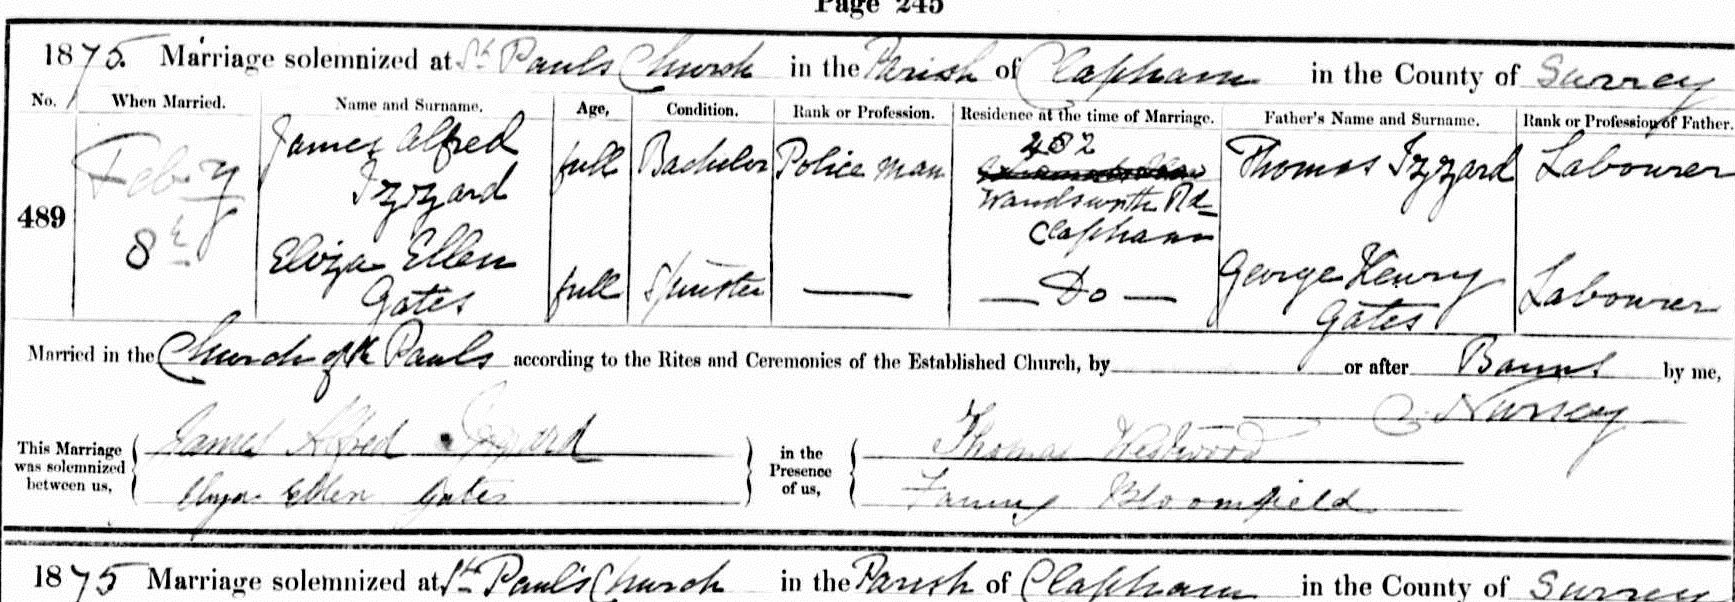 Page 245
1875. Marriage solemnized at St Pauls Church in the Parish of Clapham in the County of Surrey
No. When Married. Name and Surname. Age, Condition. Rank or Profession. Residence at the time of Marriage. Father's Name and Surname. Rank or Profession of Father.
489
Feby
8th
James Alfred
Izzard
full
Bachelor
Police man
482
Wandsworth Rd
Clapham
Thomas Izzard
Labourer
Eliza Ellen
Gates
full
Spinster
—
— Do —
George Henry
Gates
Labourer
Married in the Church of St Pauls according to the Rites and Ceremonies of the Established Church, by or after Banns by me,
C. Nursey
This Marriage
was solemnized
between us,
James Alfred Izzard
Eliza Ellen Gates
in the
Presence
of us,
Thomas Westwood
Fanny Bloomfield
1875 Marriage solemnized at St. Paul's Church in the Parish of Clapham in the County of Surrey